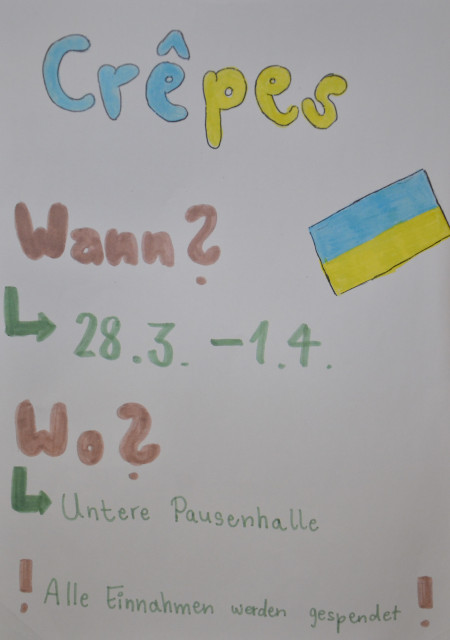 Crêpes
Wann?
28.3. - 1.4.
Wo?
Untere Pausenhalle
! Alle Einnahmen werden gespendet !